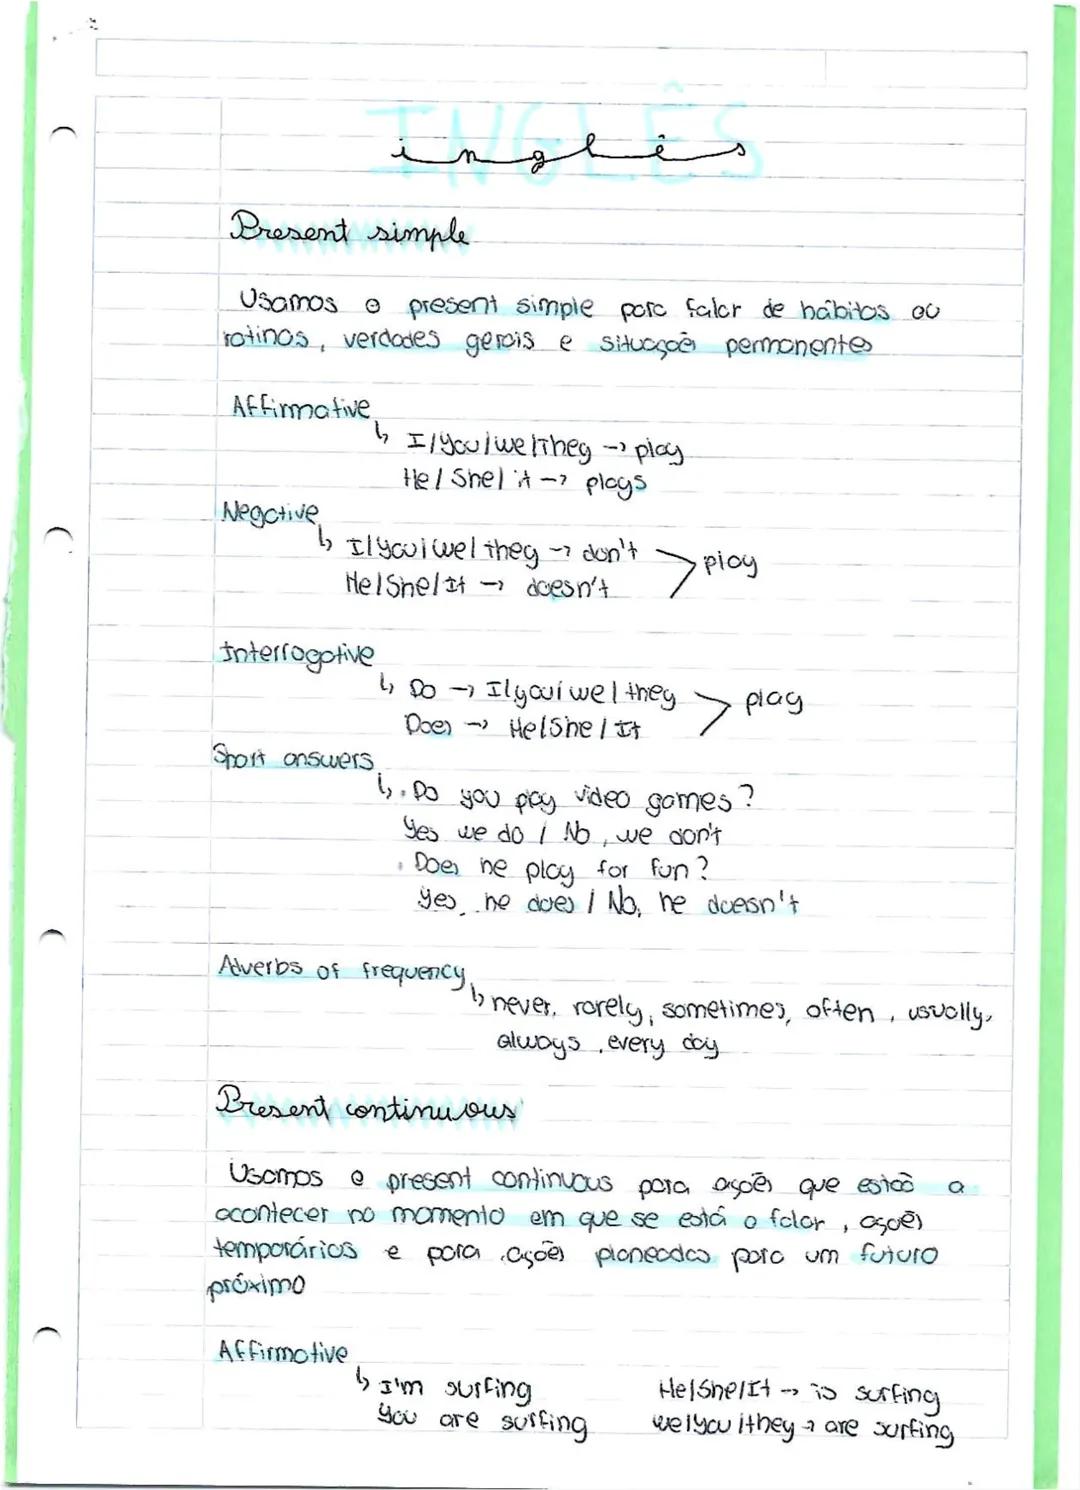 INGLÊS
inglês
Present simple
Usamos o present simple para falar de hábitos ou
rotinas, verdades gerais e situações permanentes
Affirmative
↳ I/you/we/They → play
He/She/it → plays
Negative
↳ I/you/we/they → don't > play
He/She/It → doesn't
Interrogative
↳ Do → I/you/we/they > play
Does → He/She/It
Short answers
↳ . Do you play video games?
Yes we do / No, we don't
. Does he play for fun?
Yes, he does / No, he doesn't
Adverbs of frequency
↳ never, rarely, sometimes, often, usually,
always, every day
Present continuous
Usamos o present continuous para ações que estão a
acontecer no momento em que se está a falar, ações
temporários e para ações planeadas para um futuro
próximo
Affirmative
↳ I'm surfing He/She/It → is surfing
You are surfing we/you/they → are surfing